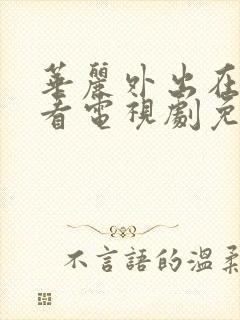 華麗外出在
看電視劇免
不言語的溫柔